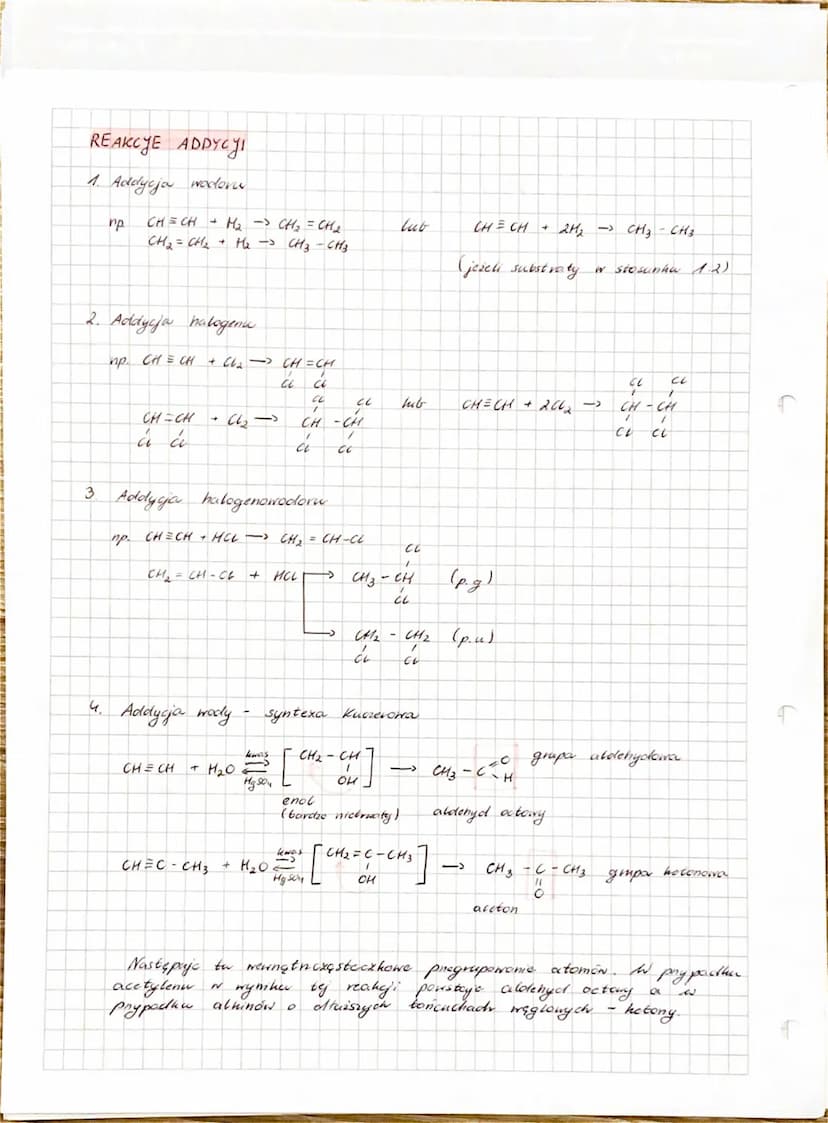 REAKCJE ADDYCJI
1. Addycja wodoru
np CH≡CH + H₂ → CH₂=CH₂ lub CH≡CH + 2H₂ → CH₃-CH₃
CH₂=CH₂ + H₂ → CH₃-CH₃
(jeżeli substraty w stosunku 1:2)
2. Addycja halogenu
np. CH≡CH + Cl₂ → CH=CH
Cl Cl
Cl Cl lub CH≡CH + 2Cl₂ → CH-CH
CH=CH + Cl₂ → CH-CH
Cl Cl
Cl Cl Cl Cl
Cl Cl
3 Addycja halogenowodoru
np. CH≡CH + HCl → CH₂=CH-Cl
Cl
CH₂=CH-Cl + HCl → CH₃-CH (p.g)
Cl
→ CH₂-CH₂ (p.u)
Cl Cl
4. Addycja wody - synteza Kuczerowa
kwas
CH≡CH + H₂O ⇄ [CH₂-CH] → CH₃-C=O grupa aldehydowa
HgSO₄ OH H
enol
(bardzo nietrwały) aldehyd octowy
kwas
CH≡C-CH₃ + H₂O ⇄ [CH₂=C-CH₃] → CH₃-C-CH₃ grupa ketonowa
HgSO₄ OH O
aceton
Następuje tu wewnątrzcząsteczkowe przegrupowanie atomów. W przypadku
acetylenu w wyniku tej reakcji powstaje aldehyd octowy a w
przypadku alkinów o dłuższych łańcuchach węglowych - ketony.